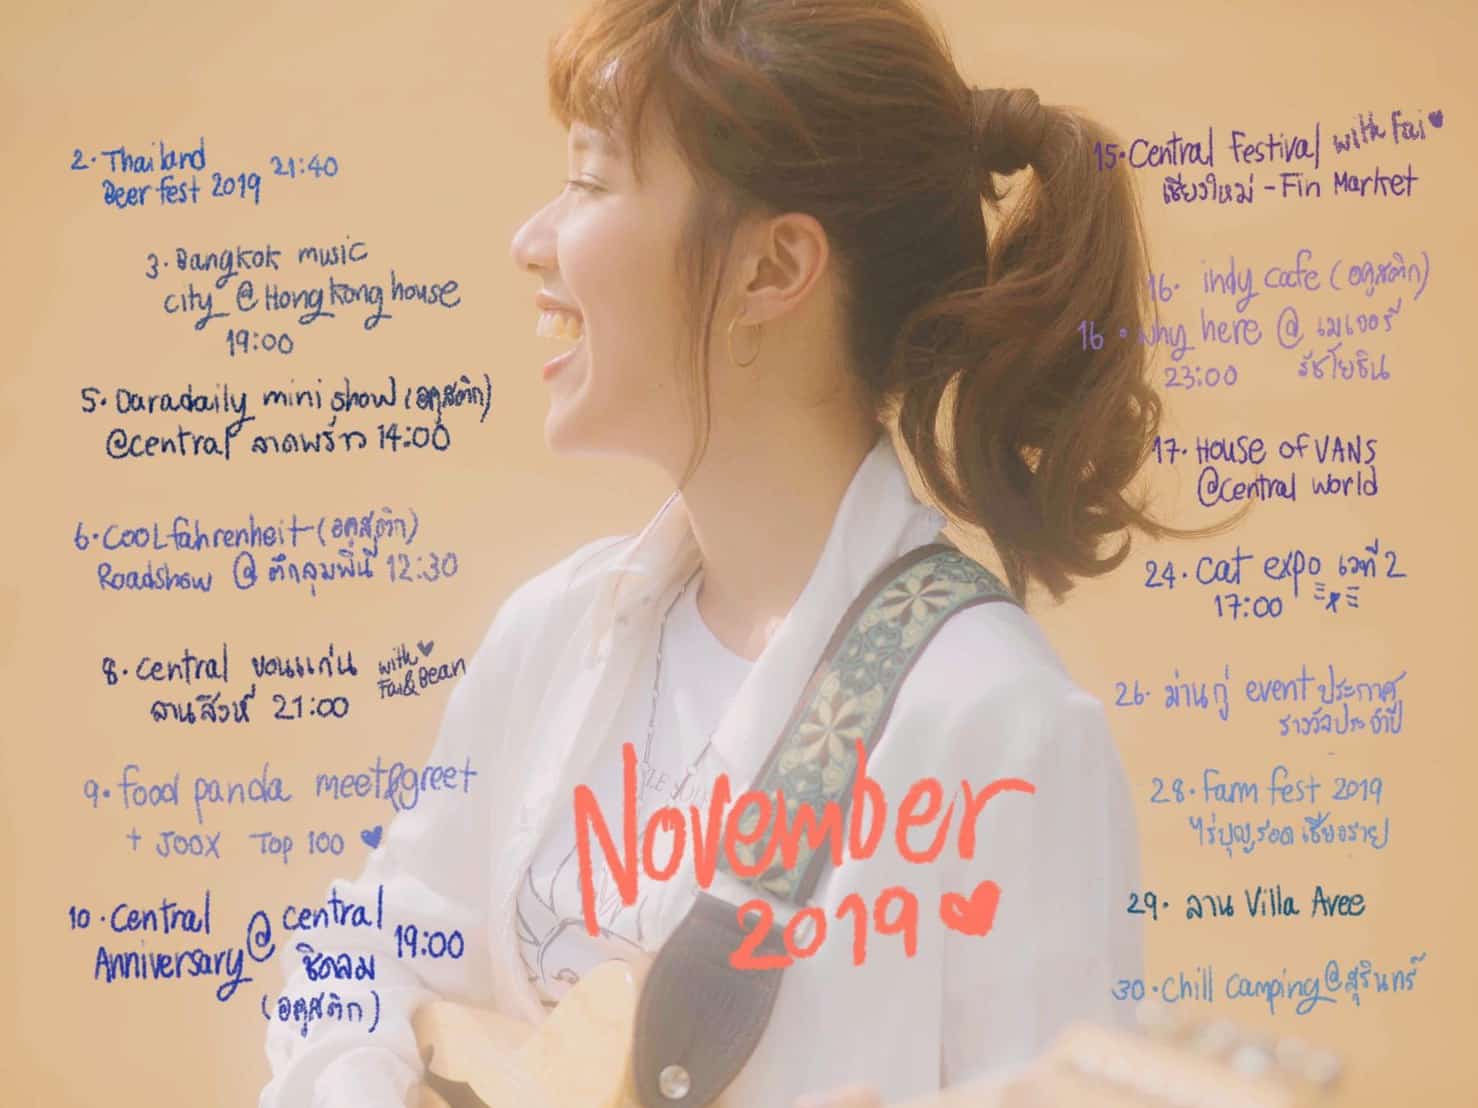 2. Thailand 21:40
Beer fest 2019
3. Bangkok music
city @Hong Kong house
19:00
5. Daradaily mini show (อคูสติก)
@central ลาดพร้าว 14:00
6. COOLfahrenheit (อคูสติก)
Roadshow @ ตึกลุมพินี 12:30
8. Central ขอนแก่น with
ลานสิงห์ 21:00 Fai&Bean
9. food panda meet&greet
+ JOOX Top 100
10. Central @ central 19:00
Anniversary ชิดลม
(อคูสติก)
15. Central Festival with Fai
เชียงใหม่ - Fin Market
16. indy cafe (อคูสติก)
16. Why here @ เมเจอร์
23:00 รัชโยธิน
17. HOUSE of VANS
@central world
24. Cat expo เวที 2
17:00
26. ม่านกู่ event ประกาศ
รางวัลประจำปี
28. Farm fest 2019
ไร่บุญรอด เชียงราย
29. ลาน Villa Avee
30. Chill Camping @สุรินทร์
November
2019